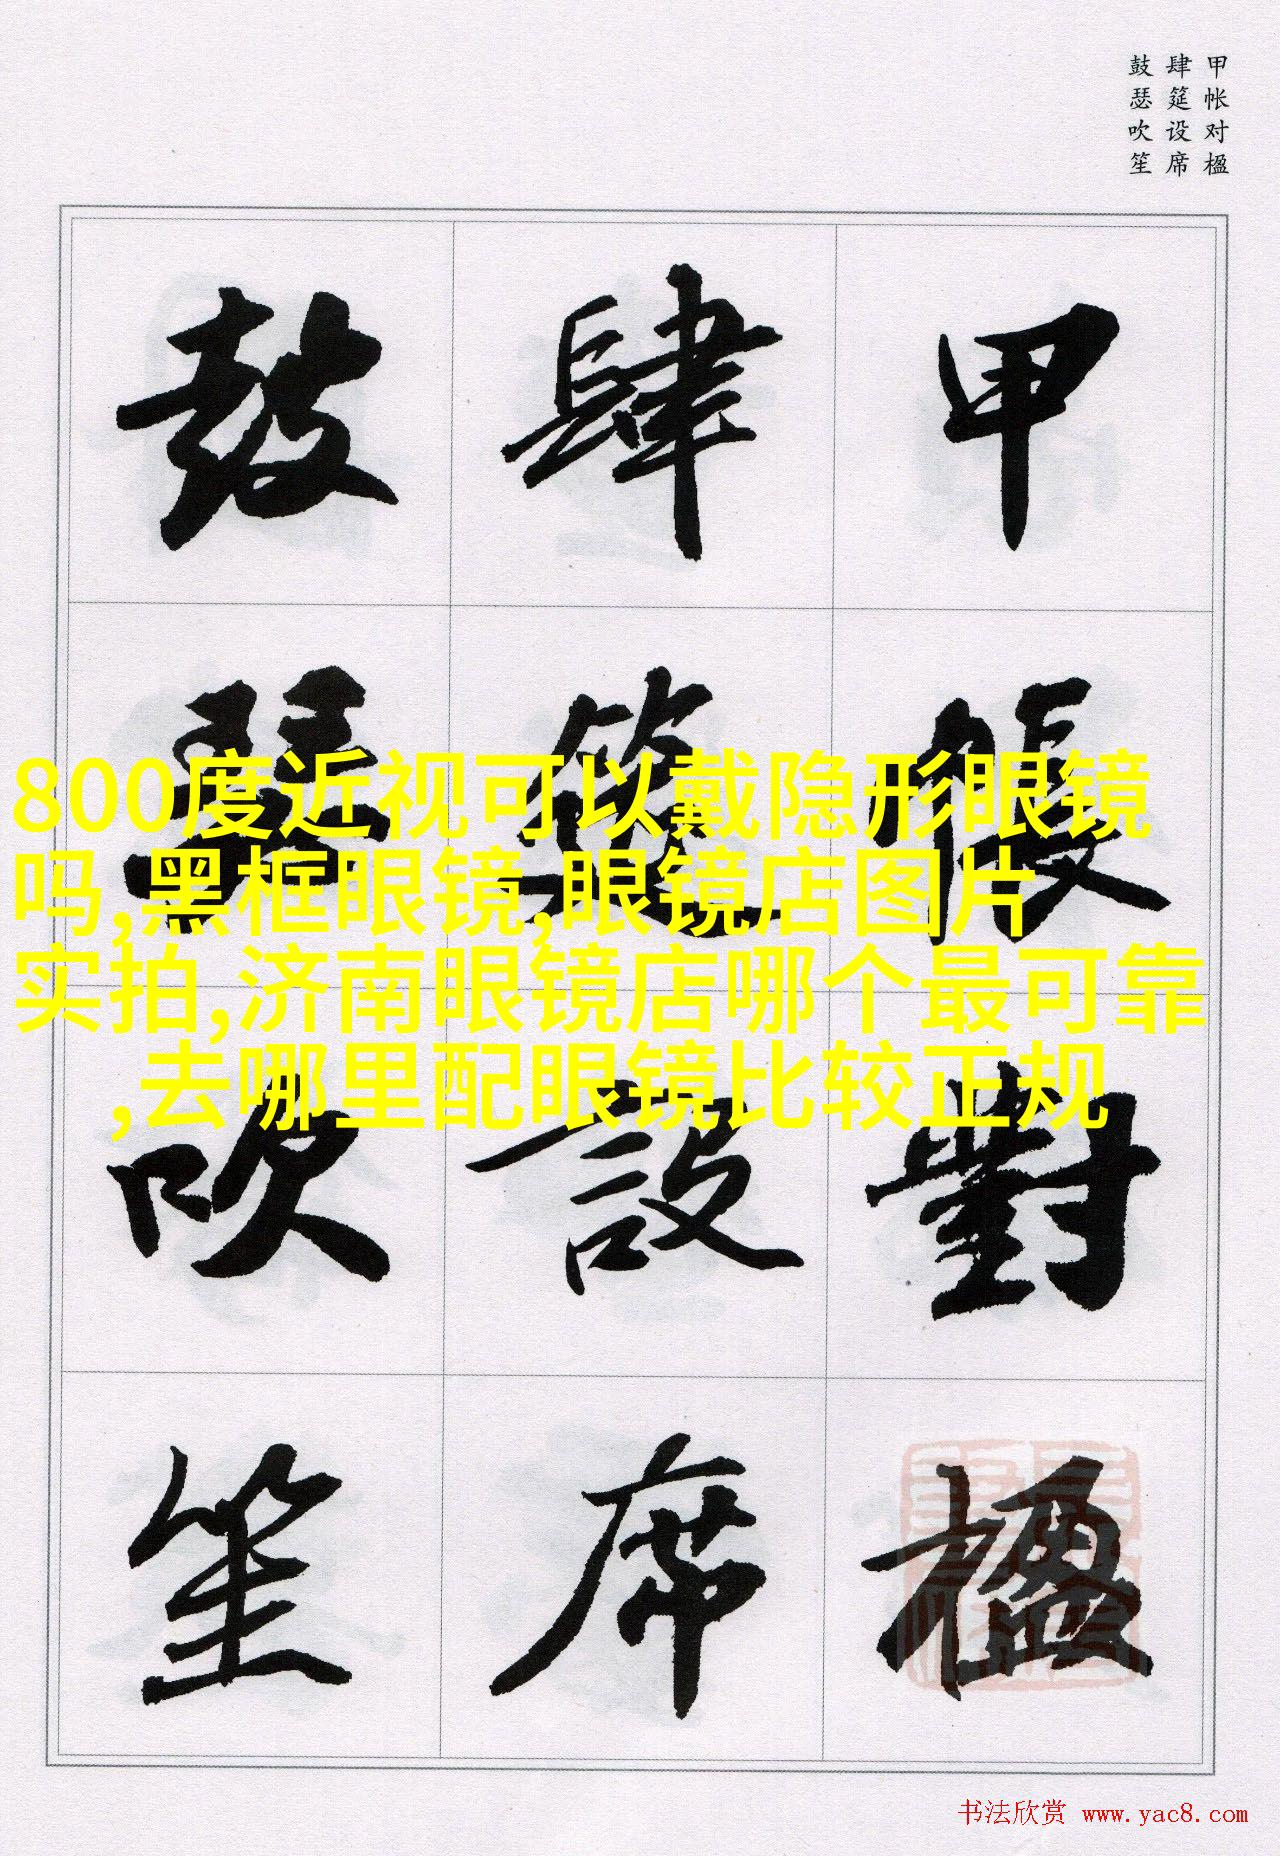 甲帐对楹
肆筵设席
鼓瑟吹笙
甲帳對楹
肆筵設席
鼓瑟吹笙
800度近视可以戴隐形眼镜
吗,黑框眼镜,眼镜店图片
实拍,济南眼镜店哪个最可靠
,去哪里配眼镜比较正规
书法欣赏 www.yac8.com